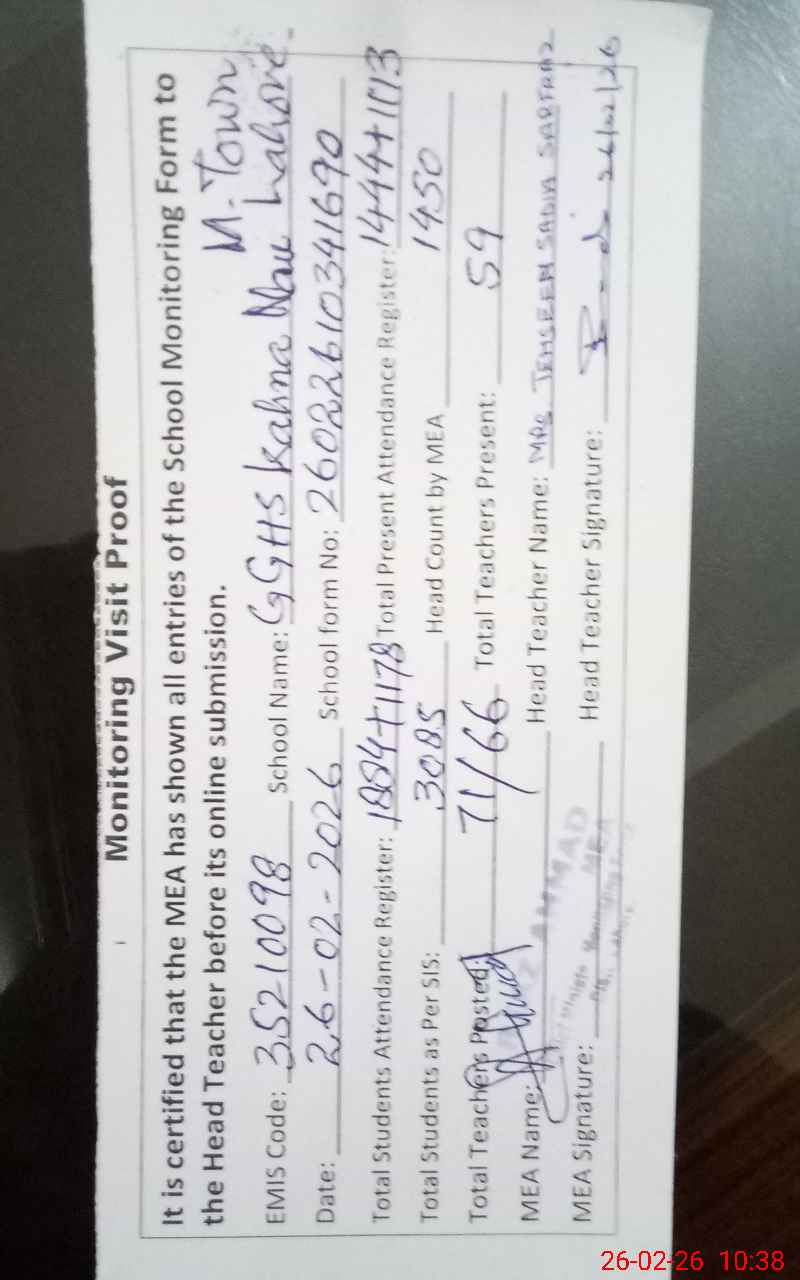 Monitoring Visit Proof
It is certified that the MEA has shown all entries of the School Monitoring Form to
the Head Teacher before its online submission.
M. Town
EMIS Code: 35210098 School Name: GGHS Kahna Nau Lahore.
Date: 26-02-2026 School form No: 26022610341690
Total Students Attendance Register: 1884+1178 Total Present Attendance Register: 1444+1013
Total Students as Per SIS: 3085 Head Count by MEA 1450
Total Teachers Posted: 71/66 Total Teachers Present: 59
MEA Name: AHMAD Head Teacher Name: MRS. TEHSEEN SADIA SARFRAZ
MEA Signature: MEA Head Teacher Signature: 26/02/26
Lahore
26-02-26 10:38